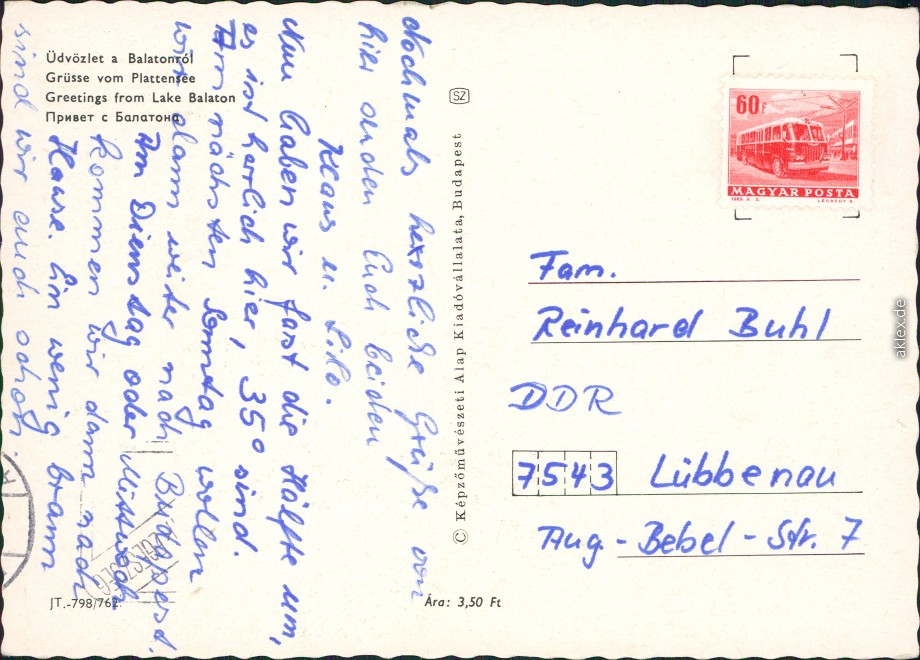 Üdvözlet a Balatonról
Grüsse vom Plattensee
Greetings from Lake Balaton
Привет с Балатона
Nochmals herzliche Grüße von
hier senden Euch beiden
Klaus u. Silo.
Nun haben wir fast die Hälfte um,
es ist herlich hier, 35° sind.
Am nächsten Sonntag wollen
wir dann weiter nach Budapest.
Am Dienstag oder Mittwoch
kommen wir dann nach
Hause. Ein wenig braun
sind wir auch schon.
JT.-798/762.
SZ
© Képzőművészeti Alap Kiadóvállalata, Budapest
Ára: 3,50 Ft
60f
MAGYAR POSTA
Fam.
Reinhard Buhl
DDR
7543 Lübbenau
Aug.-Bebel-Str. 7
aklex.de